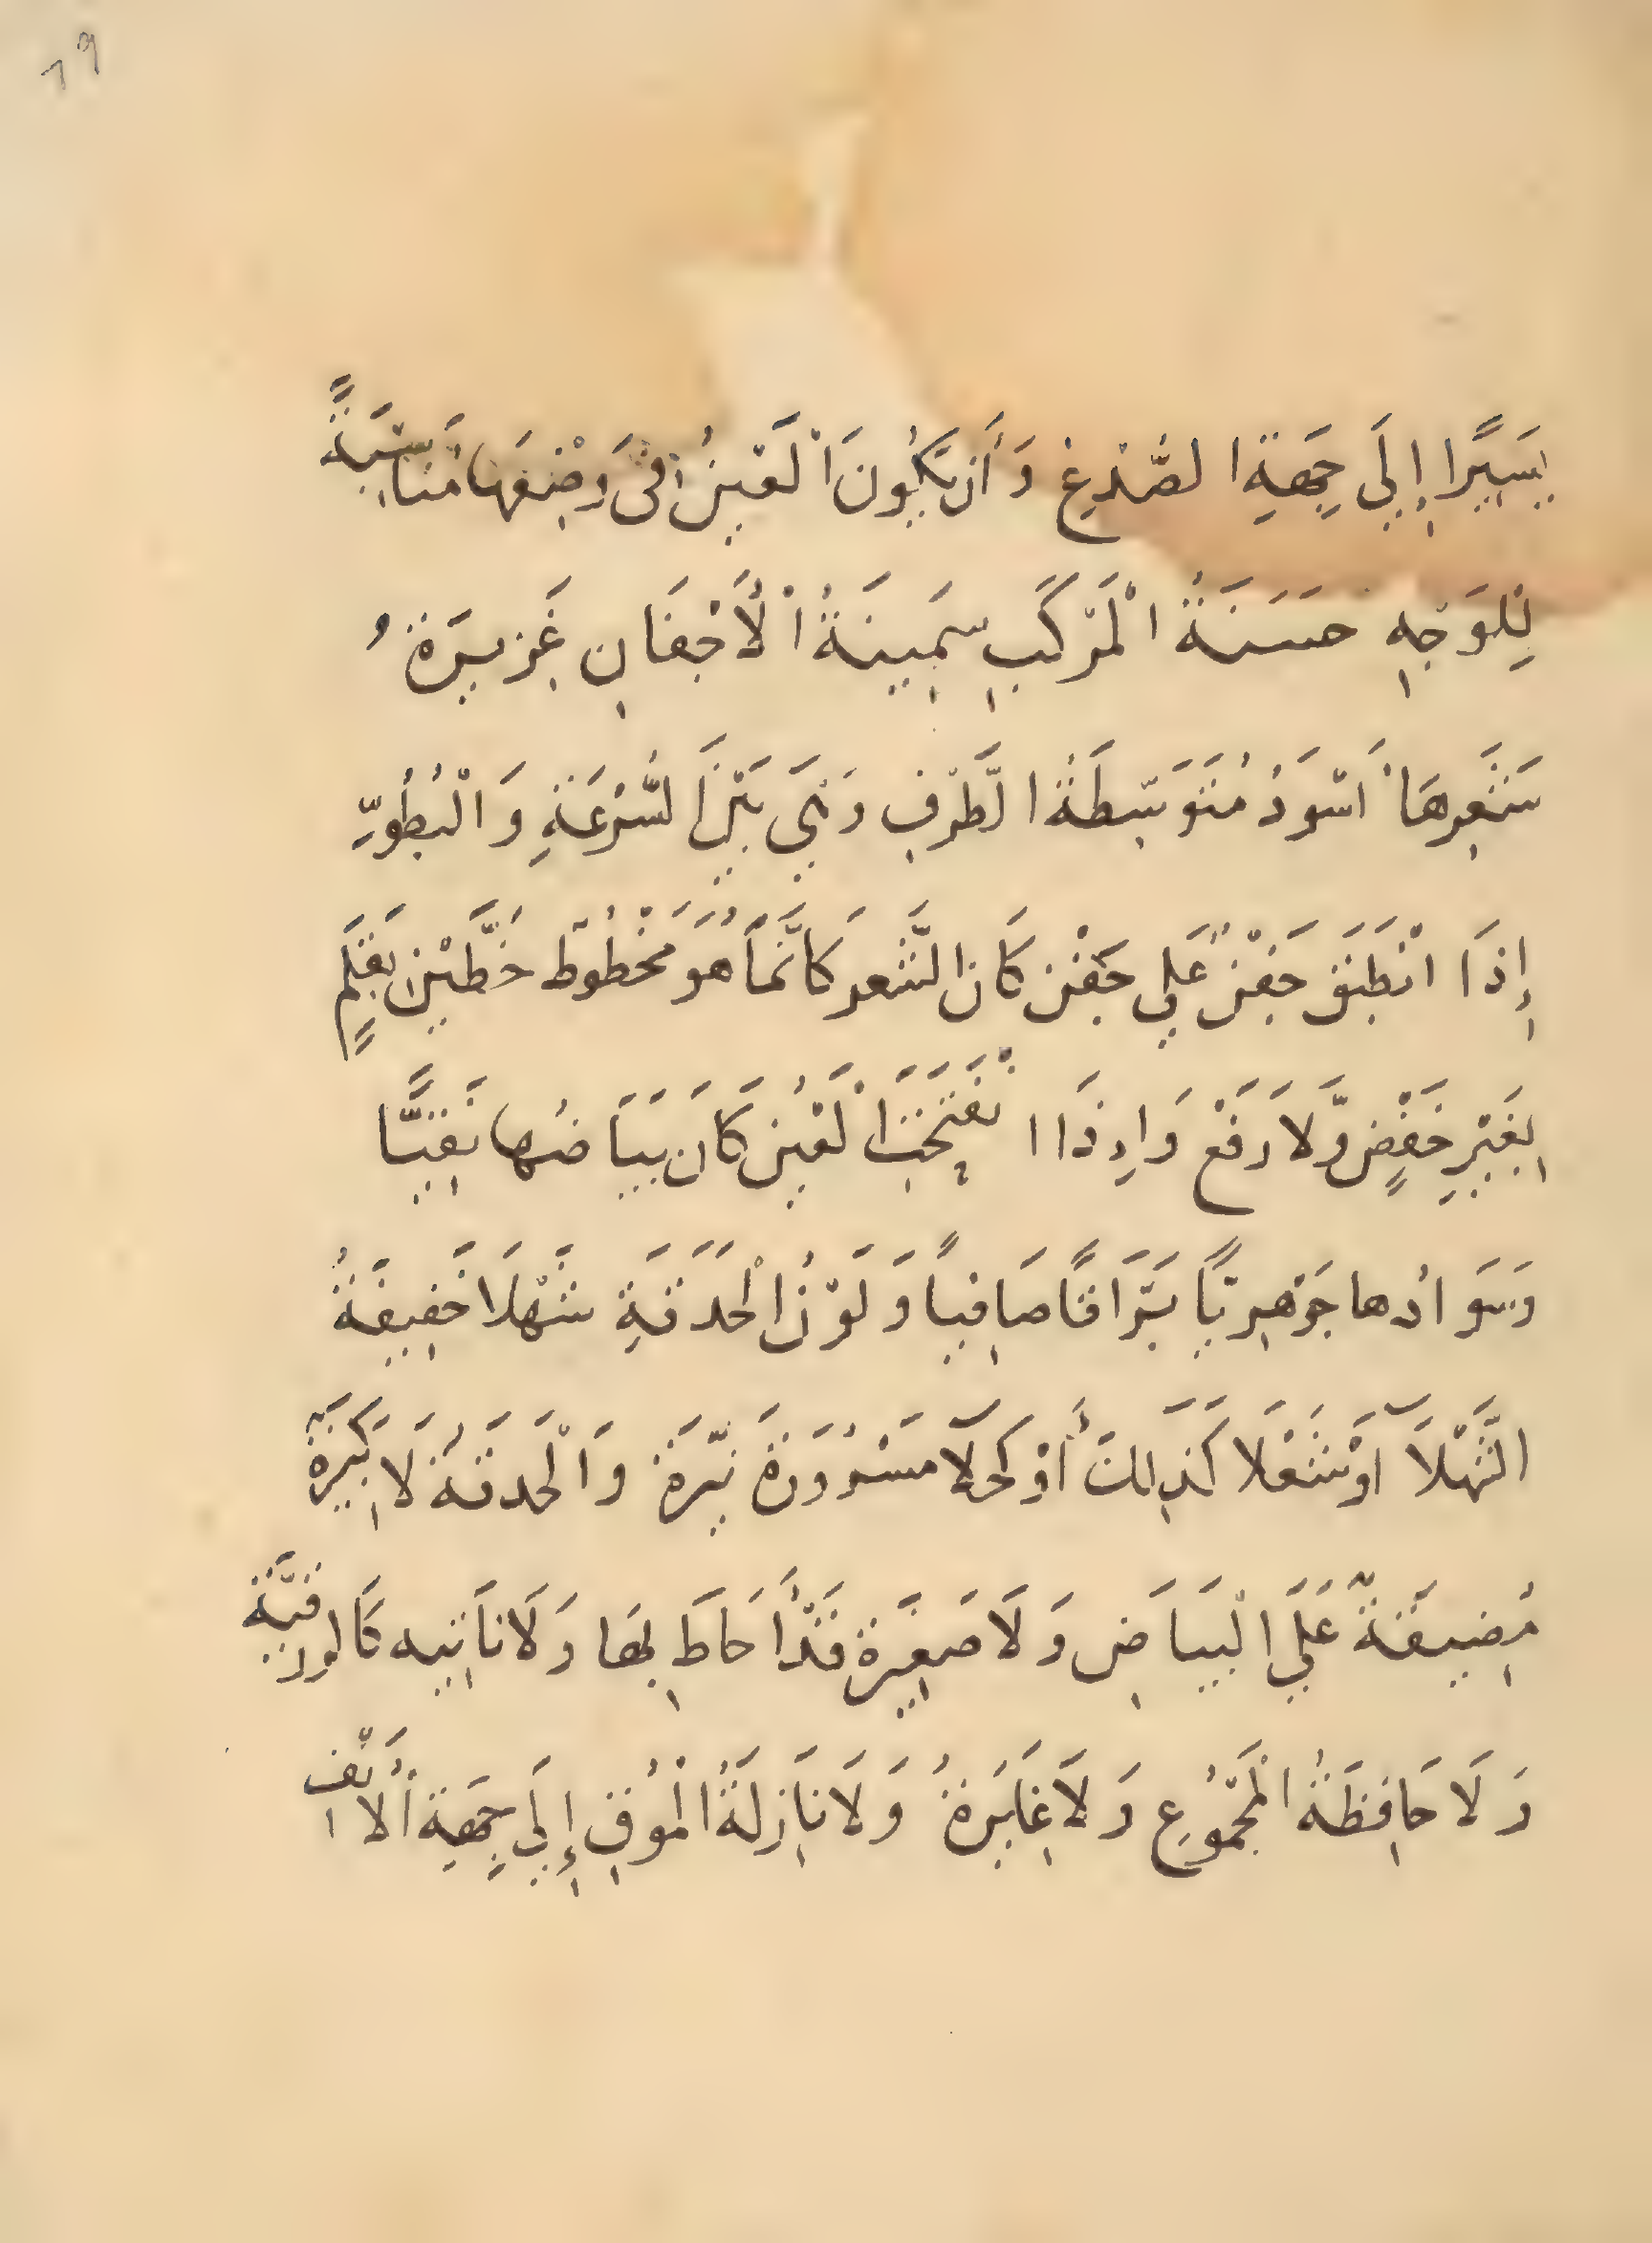 ١٩
يَسِيرًا إِلَي جِهَةِ الصُّدْغِ وَأَن يَكُونَ الْعَيْنُ فِي وَضْعِهَا مُنَاسِبَةً
لِلْوَجْهِ حَسَنَةُ الْمَرْكَبِ سَمِينَةُ الْأَجْفَانِ غَزِيرَةُ
شَعْرِهَا أَسْوَدُ مُتَوَسِّطَةُ الطَّرْفِ وَهِيَ بَيْنَ السُّرْعَةِ وَالْبُطُوِّ
إِذَا انْطَبَقَ جَفْنٌ عَلي جَفْنٍ كَان الشَّعر كَانَّمَا هُوَ مَخْطُوطْ خَطَّيْنِ بِقَلَمٍ
بِغَيْرِ خَفْضٍ وَّلَا رَفْع وَاِذَا انْفَتَحَتِ الْعَيْنُ كَانَ بَيَاضُها نَقِيًّا
وَسَوَادُها جَوْهَرِيًّا بَرَّاقًا صَافِيًا وَلَوْنُ الْحَدَقَةِ شَهْلَا خَفِيفَةُ
الشَّهْلَا أَوْ شَعْلَا كَذَلِكَ أَوْ كَحْلَا مَسْرُورَةٌ نَيِّرَةٌ وَالْحَدَقَةُ لَا كَبِيرَةٌ
مُضِيقَةٌ عَلَي الْبَيَاضِ وَلَا صَغِيرَة قَدْ أَحَاطَ بِهَا وَلَا نَاتِيه كَالورقيَّة
وَلَا حَافِظَةُ الْمَجْمُوعِ وَلَا غَايِرَةُ وَلَا نَازِلَةُ الْمُوقِ إِلَي جِهَةِ الْأَنْفِ